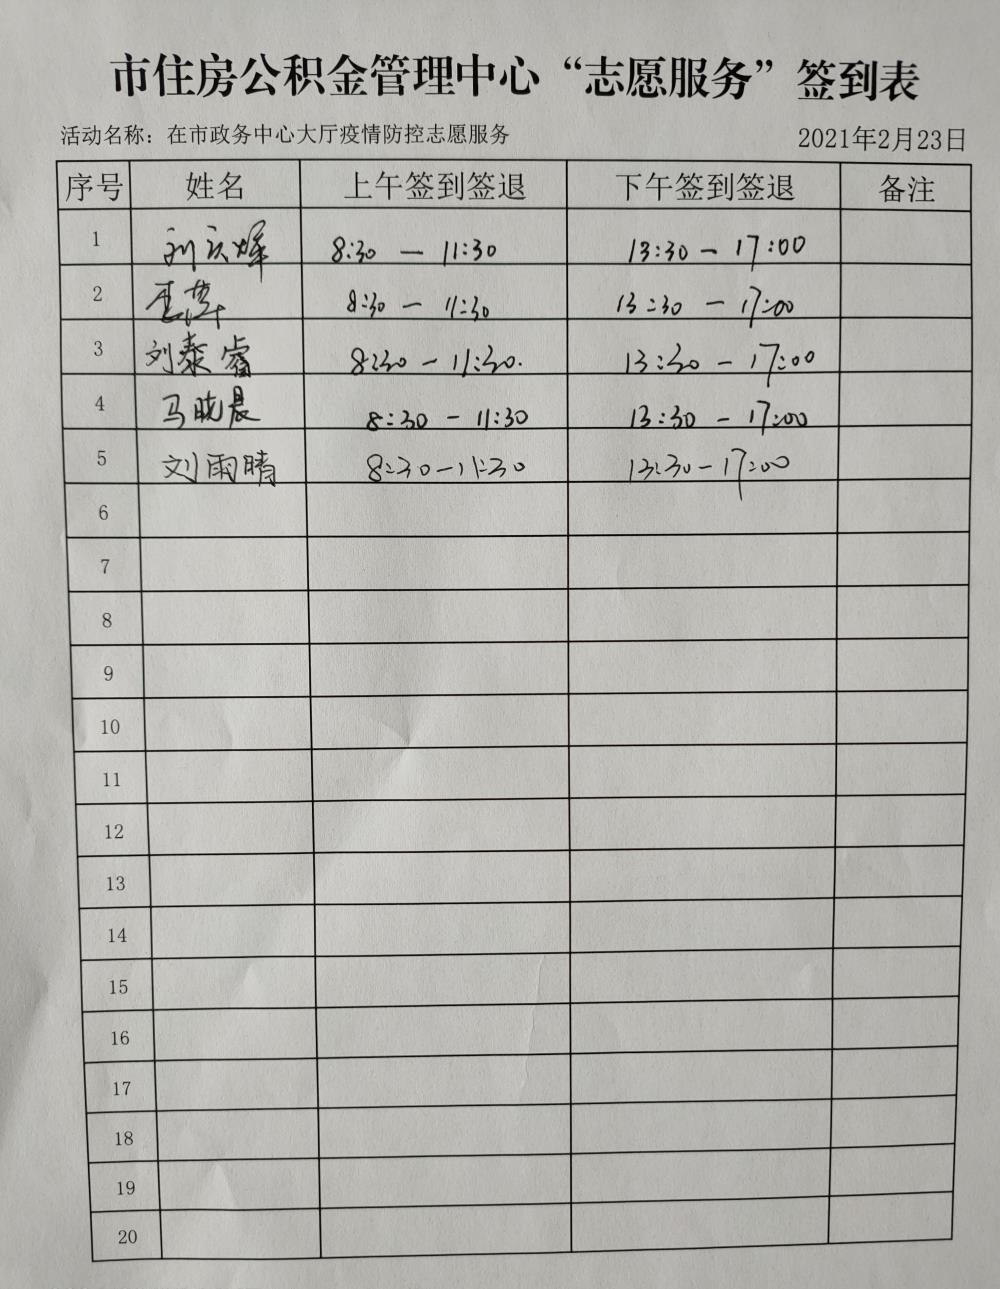 市住房公积金管理中心“志愿服务”签到表
活动名称：在市政务中心大厅疫情防控志愿服务 2021年2月23日
序号 姓名 上午签到签退 下午签到签退 备注
1 刘庆辉 8:30 — 11:30 13:30 — 17:00
2 8:30 — 11:30 13:30 — 17:00
3 刘泰睿 8:30 — 11:30. 13:30 — 17:00
4 马晓晨 8:30 — 11:30 13:30 — 17:00
5 刘雨晴 8:30 — 11:30 13:30 — 17:00
6
7
8
9
10
11
12
13
14
15
16
17
18
19
20